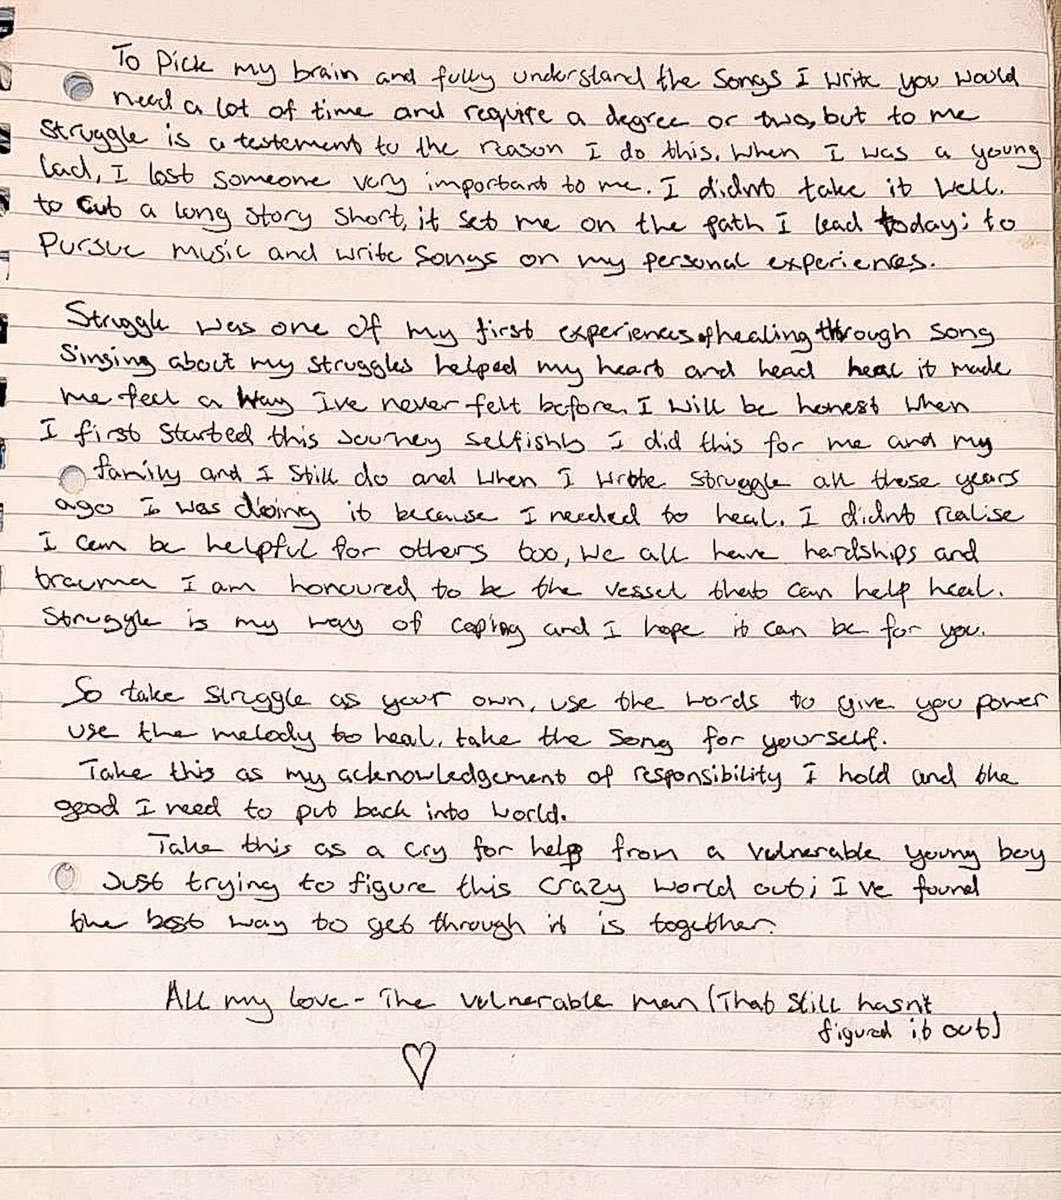 To Pick my brain and fully understand the songs I write you would
need a lot of time and require a degree or two, but to me
Struggle is a testement to the reason I do this. When I was a young
lad, I lost someone very important to me. I didnt take it well.
to cut a long story short, it set me on the path I lead today; to
Pursue music and write songs on my personal experiences.
Struggle was one of my first experiences of healing through song
Singing about my struggles helped my heart and head heal it made
me feel a way I've never felt before. I will be honest when
I first started this journey selfishly I did this for me and my
family and I still do and when I wrote struggle all those years
ago I was doing it because I needed to heal. I didnt realise
I can be helpful for others too, we all have hardships and
trauma I am honoured to be the vessel that can help heal.
Struggle is my way of coping and I hope it can be for you.
So take struggle as your own, use the words to give you power
use the melody to heal. take the song for yourself.
Take this as my acknowledgement of responsibility I hold and the
good I need to put back into world.
Take this as a cry for help from a vulnerable young boy
Just trying to figure this crazy world out; I've found
the best way to get through it is together.
All my love - The vulnerable man (That still hasn't
figured it out)